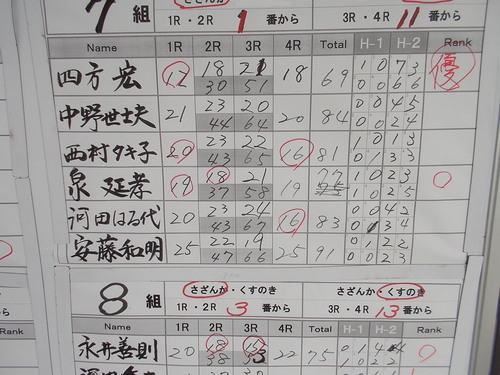 7 組
1R・2R 1 番から
3R・4R 11 番から
Name 1R 2R 3R 4R Total H-1 H-2 Rank
四方 宏 17 18 21 18 69 1 0 7 3 優
30 51 0 0 6 6
中野世士夫 21 23 20 20 84 0 0 4 5
44 64 0 0 2 4
西村タキ子 20 23 22 16 81 1 0 1 3
43 65 0 1 3 3
泉 延孝 19 18 21 19 77 0 0 2 3
37 58 1 0 2 5
河田はる代 20 23 24 16 83 0 0 4 2
43 67 0 3 4
安藤和明 25 22 19 25 91 0 1 2 2
47 66 0 0 2 3
8 組
さざんか・くすのき さざんか・くすのき
1R・2R 3 番から 3R・4R 13 番から
Name 1R 2R 3R 4R Total H-1 H-2 Rank
永井善則 20 18 15 22 75 0 1 4 4
38 53 1 0 2 2